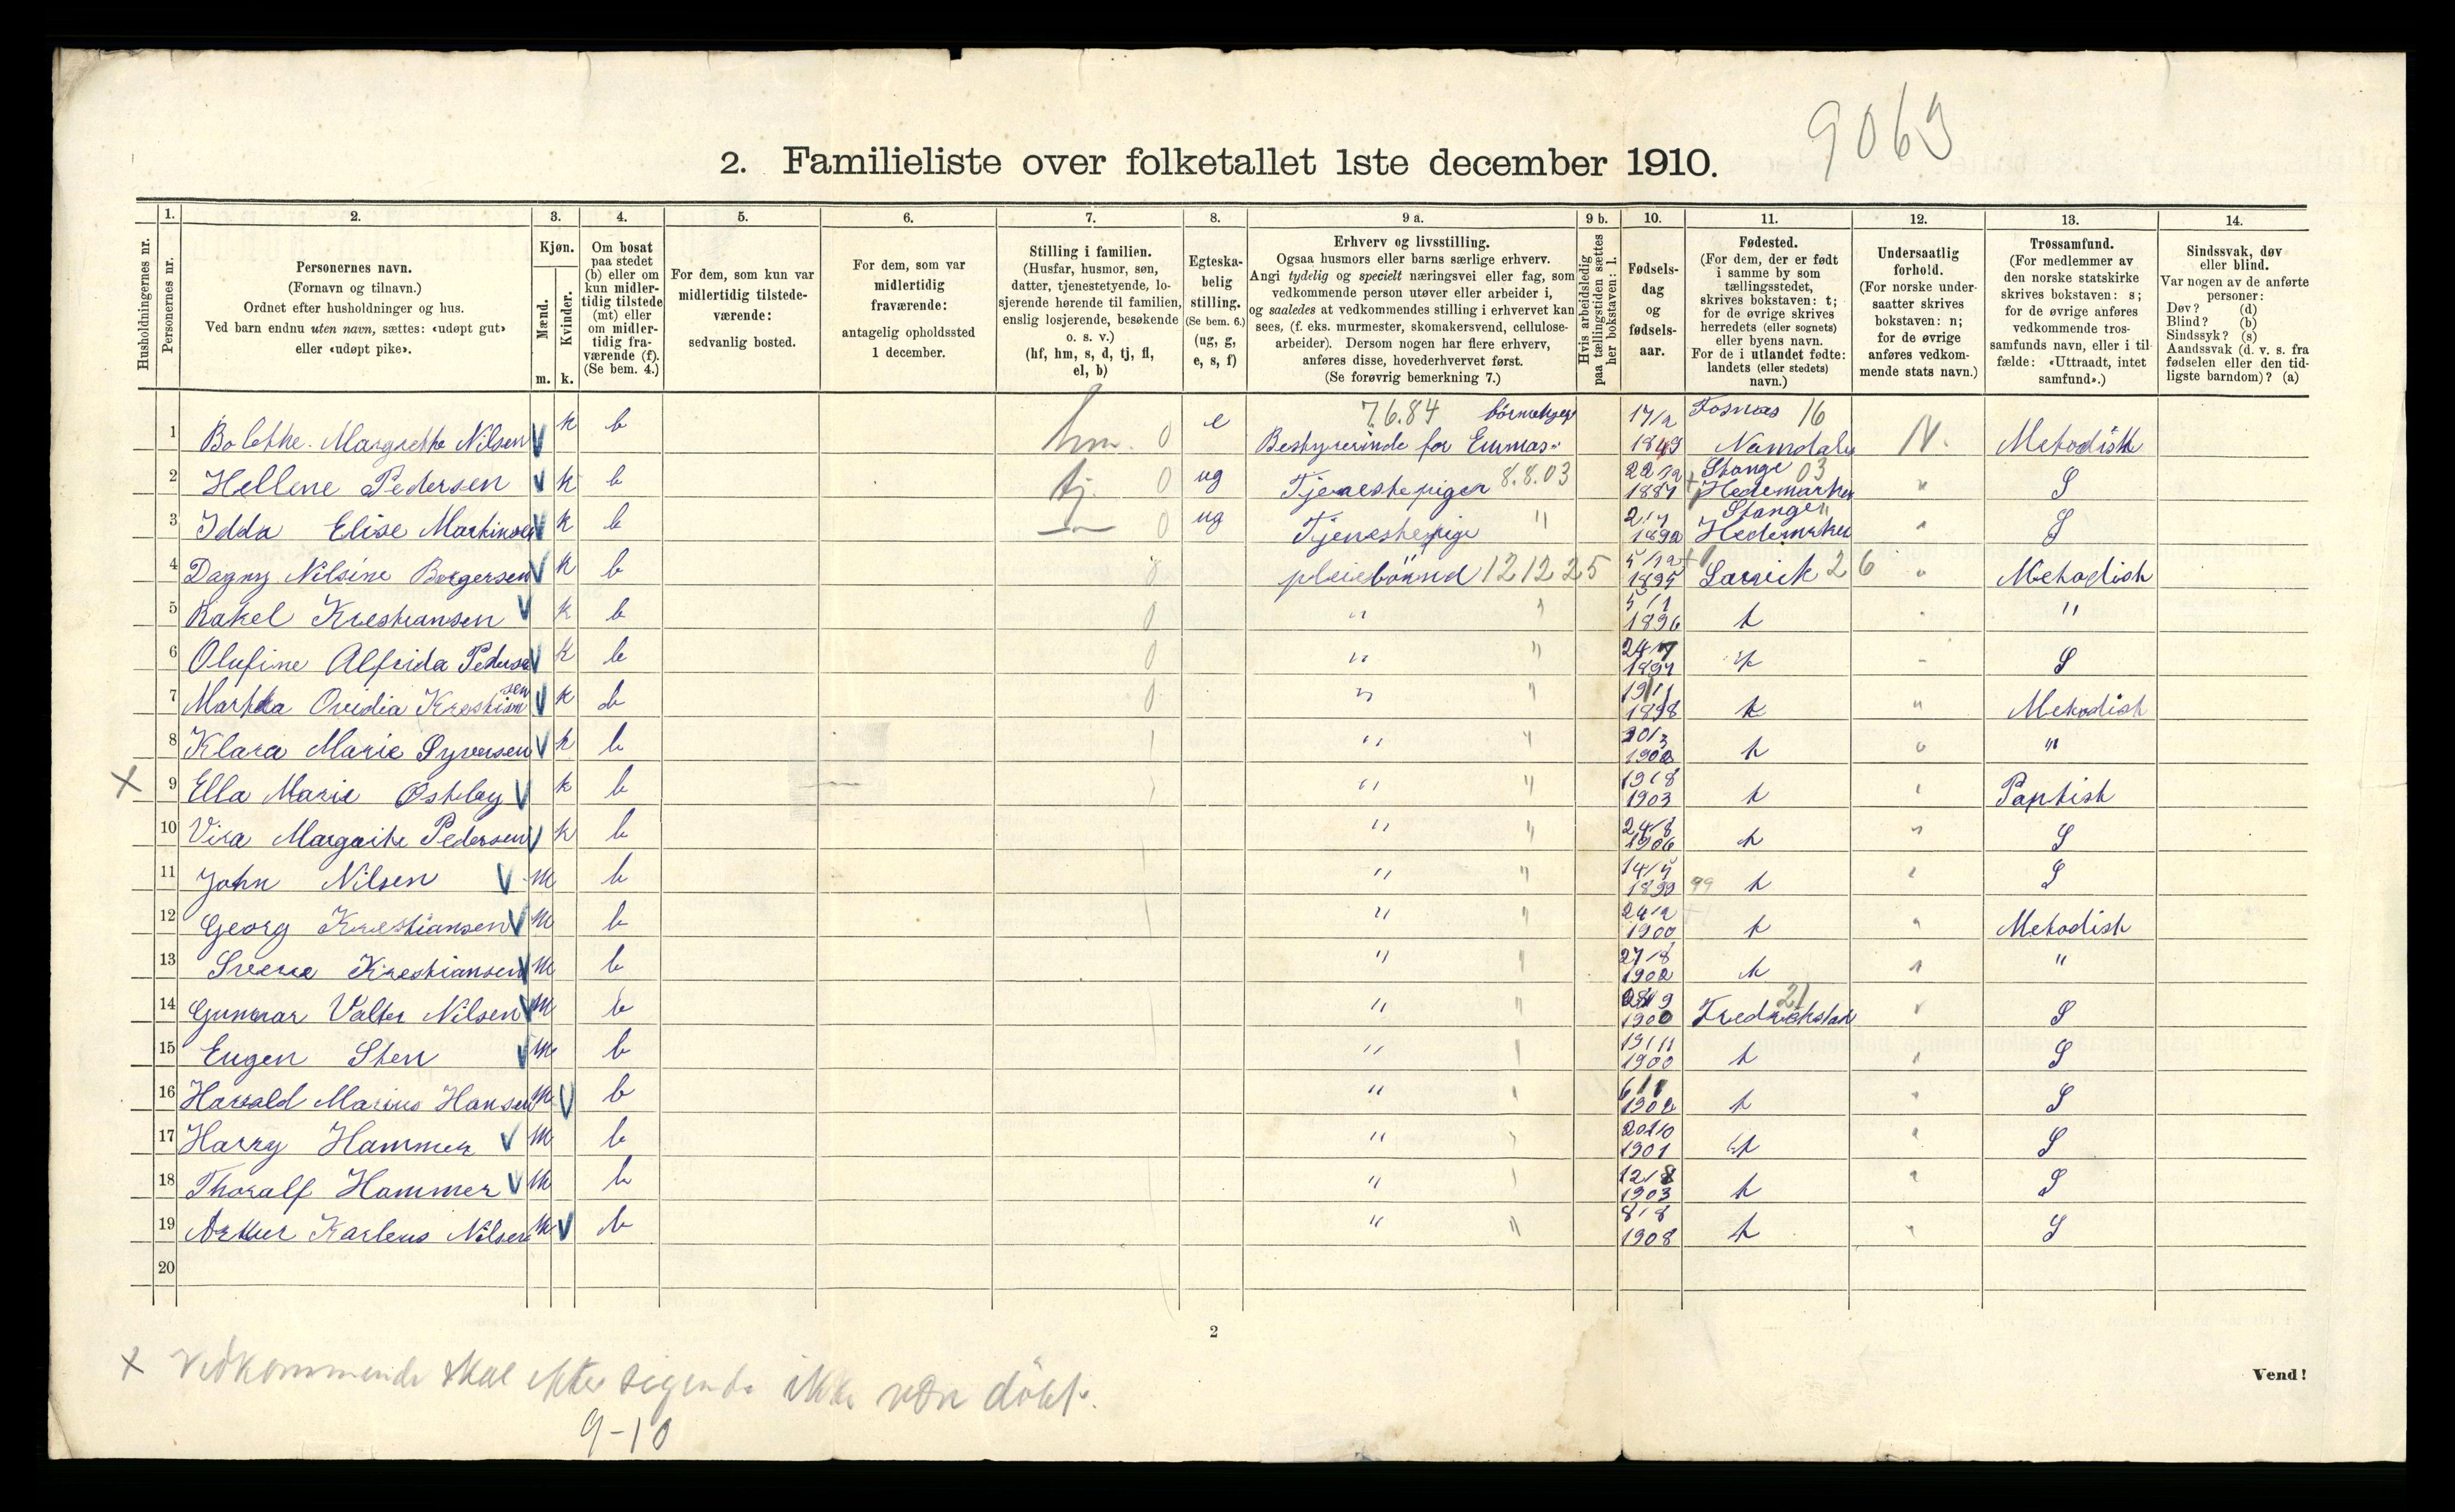 9069
2. Familieliste over folketallet 1ste december 1910.
Husholdningernes nr.
1. Personernes nr.
2. Personernes navn. (Fornavn og tilnavn.) Ordnet efter husholdninger og hus. Ved barn endnu uten navn, sættes: «udøpt gut» eller «udøpt pike».
3. Kjøn. Mænd. m. Kvinder. k.
4. Om bosat paa stedet (b) eller om kun midler-tidig tilstede (mt) eller om midler-tidig fra-værende (f). (Se bem. 4.)
5. For dem, som kun var midlertidig tilstede-værende: sedvanlig bosted.
6. For dem, som var midlertidig fraværende: antagelig opholdssted 1 december.
7. Stilling i familien. (Husfar, husmor, søn, datter, tjenestetyende, lo-sjerende hørende til familien, enslig losjerende, besøkende o. s. v.) (hf, hm, s, d, tj, fl, el, b)
8. Egteska-belig stilling. (Se bem. 6.) (ug, g, e, s, f)
9 a. Erhverv og livsstilling. Ogsaa husmors eller barns særlige erhverv. Angi tydelig og specielt næringsvei eller fag, som vedkommende person utøver eller arbeider i, og saaledes at vedkommendes stilling i erhvervet kan sees, (f. eks. murmester, skomakersvend, cellulose-arbeider). Dersom nogen har flere erhverv, anføres disse, hovederhvervet først. (Se forøvrig bemerkning 7.)
9 b. Hvis arbeidsledig paa tællingstiden sættes her bokstaven: l.
10. Fødsels-dag og fødsels-aar.
11. Fødested. (For dem, der er født i samme by som tællingsstedet, skrives bokstaven: t; for de øvrige skrives herredets (eller sognets) eller byens navn. For de i utlandet fødte: landets (eller stedets) navn.)
12. Undersaatlig forhold. (For norske under-saatter skrives bokstaven: n; for de øvrige anføres vedkom-mende stats navn.)
13. Trossamfund. (For medlemmer av den norske statskirke skrives bokstaven: s; for de øvrige anføres vedkommende tros-samfunds navn, eller i til-fælde: «Uttraadt, intet samfund».)
14. Sindssvak, døv eller blind. Var nogen av de anførte personer: Døv? (d) Blind? (b) Sindssyk? (s) Aandssvak (d. v. s. fra fødselen eller den tid-ligste barndom)? (a)
1 Bolethe Margrethe Nilsen V k b hm. 0 e 7.6.84 Bestyrerinde for Emmas 17/2 1849 Fosnæs 16 Namdalen N. Metodisth
2 Hellene Pedersen V k b tj. 0 ug Tjenestepigen 8.8.03 22/12 1887 Stange 03 Hedemarken " S
3 Idda Elise Martinsen V k b 0 ug Tjenestepige " 2/7 1892 Stange " Hedemarken " S
4 Dagny Nilsine Borgersen V k b 0 pleiebarn 12 12 25 5/12 1895 Larvik 26 " Methodish
5 Rakel Krestiansen V k b 0 " " 5/1 1896 t " "
6 Olufine Alfrida Pedersen V k b 0 " " 24/7 1897 t " S
7 Martha Ovidia Krestiansen V k b 0 " " 19/1 1898 t " Metodish
8 Klara Marie Syversen V k b " " 30/3 1902 t " "
X 9 Ella Marie Østbøy V k b " " 19/8 1903 t " Paptish
10 Vira Margrithe Pedersen V k b " " 24/8 1906 t " S
11 John Nilsen V m b " " 14/4 1899 99 t " S
12 Georg Krestiansen V m b " " 24/2 1900 t " Metodish
13 Sverre Krestiansen V m b " " 27/8 1902 t " "
14 Gunnar Valter Nilsen V m b " " 28/9 1900 Fredrikstad 21 " S
15 Eugen Sten V m b " " 19/11 1900 t " S
16 Harald Marius Hansen m V b " " 6/1 1902 t " S
17 Harry Hammer V m b " " 20/10 1901 t " S
18 Thoralf Hammer V m b " " 12/8 1903 t " S
19 Artur Karleus Nilsen m V b " " 8/8 1908 t " S
20
2
Vend!
X Vedkommende skal efter sigende ikke være døbt.
9-10